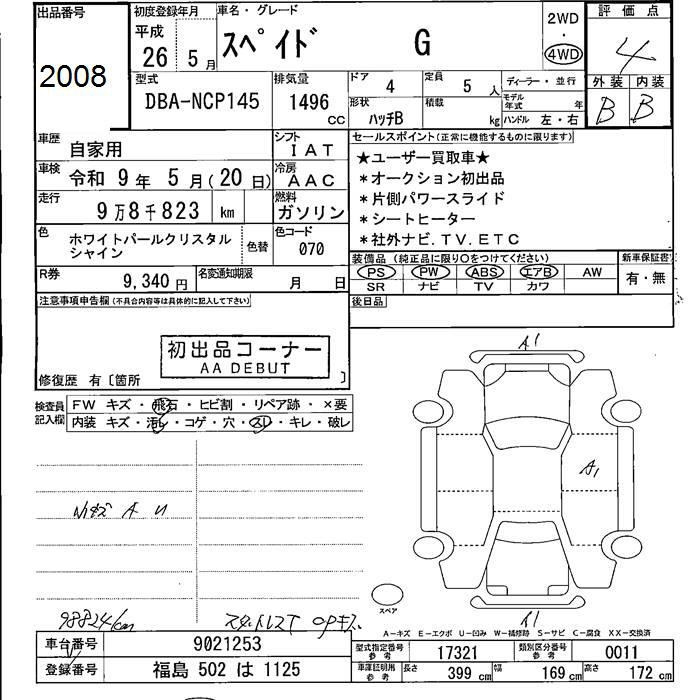 出品番号
2008
初度登録年月
平成
26 5 月
車名・グレード
スペイド G
2WD
・
4WD
評価点
4
外装 内装
B B
型式
DBA-NCP145
排気量
1496
CC
ドア 4
定員 5 人
ディーラー・並行
形状 ハッチB
積載 kg
モデル年式 年
ハンドル 左・右
車歴 自家用
シフト IAT
車検 令和 9 年 5 月(20 日)
冷房 AAC
走行 9万8千823 km
燃料 ガソリン
色 ホワイトパールクリスタル
シャイン
色替
色コード
070
R券 9,340 円
名変通知期限 月 日
セールスポイント(正常に機能するものに限ります)
★ユーザー買取車★
*オークション初出品
*片側パワースライド
*シートヒーター
*社外ナビ.TV.ETC
装備品 (純正品に限り○をつけてください)
新車保証書
PS PW ABS エアB AW
有・無
SR ナビ TV カワ
後日品
注意事項申告欄(不具合内容等は具体的に記入して下さい)
初出品コーナー
AA DEBUT
修復歴 有〔箇所 〕
検査員
記入欄
FW キズ・飛石・ヒビ割・リペア跡・×要
内装 キズ・汚レ・コゲ・穴・スレ・キレ・破レ
A1
A1
A U
98824km
スペア
A1
A-キズ E-エクボ U-凹み W-補修跡 S-サビ C-腐食 XX-交換済
車台番号 9021253
登録番号 福島 502 は 1125
型式指定番号
参考
17321
類別区分番号
参考
0011
車庫証明用
参考
長さ 399 cm 幅 169 cm 高さ 172 cm